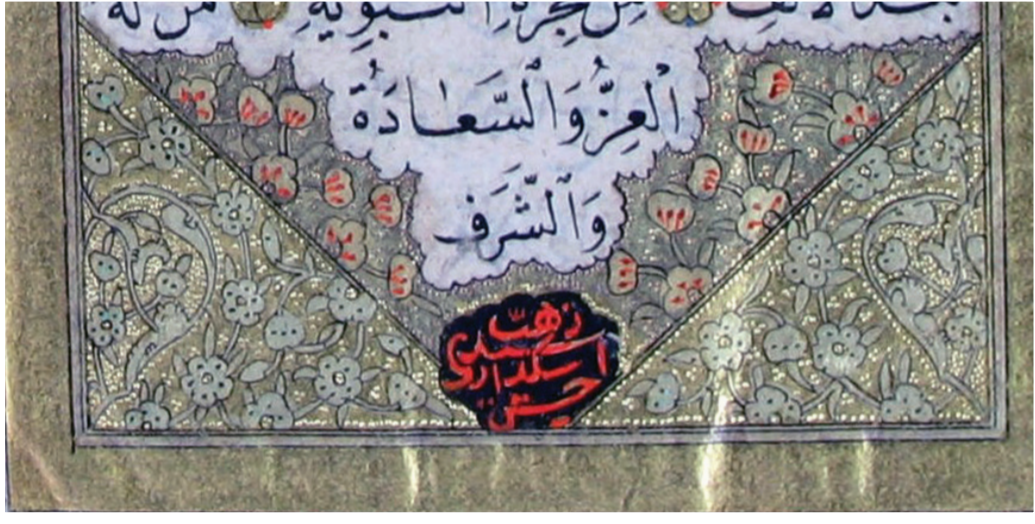 بعد الالف من هجرة النبوية من له
اَلْعِزُّ وَالسَّعَادَةُ
وَالشَّرَف
ذهبه
اسكدارى
حسين